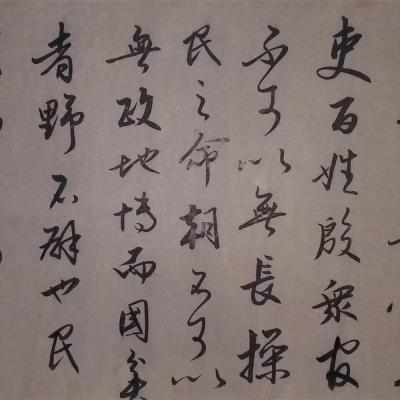 吏百姓殷衆官
不可以無長操
民之命朝不可以
無政地博而國貧
者野不辟也民